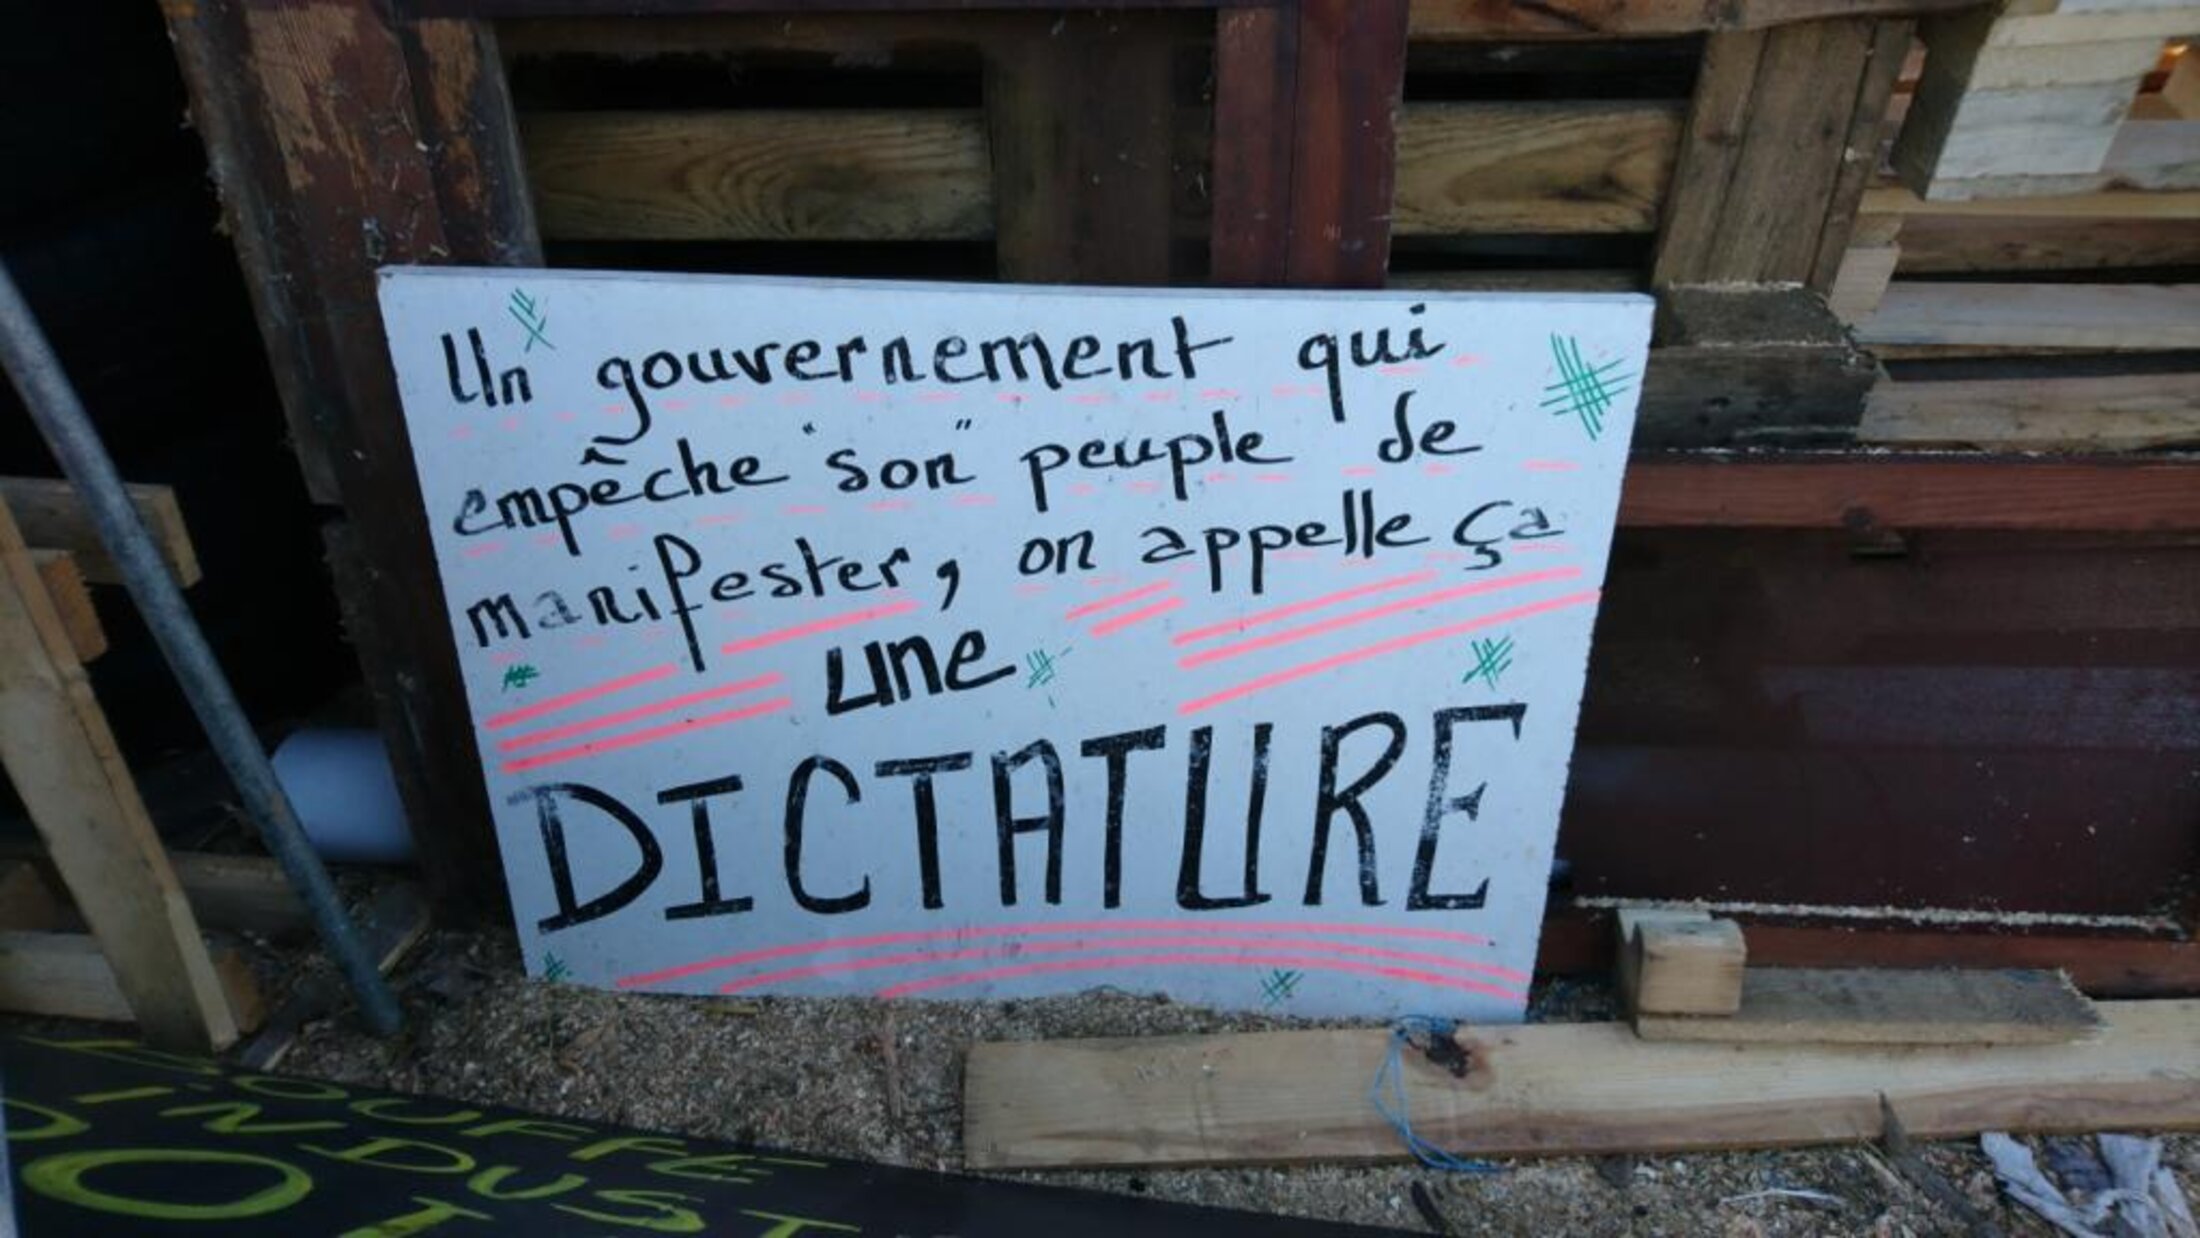 Un gouvernement qui
empêche "son" peuple de
manifester, on appelle ça
une
DICTATURE
INDUST